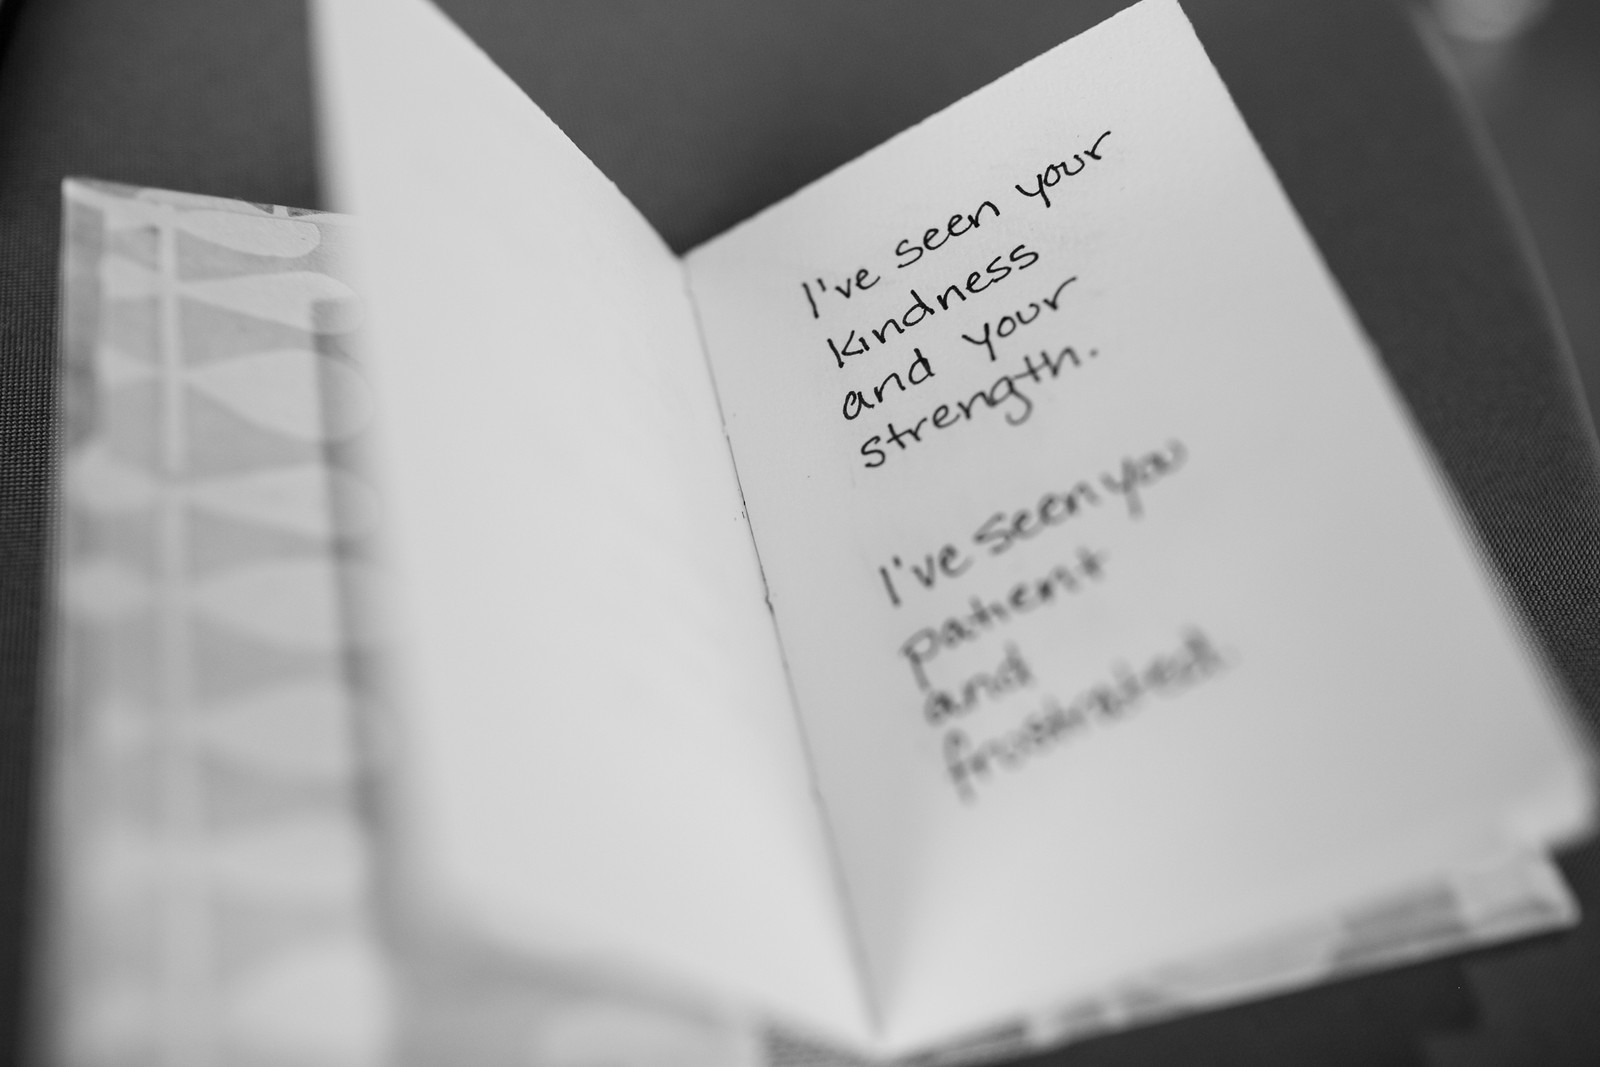 I've seen your
kindness
and your
strength.
I've seen you
patient
and
frustrated.